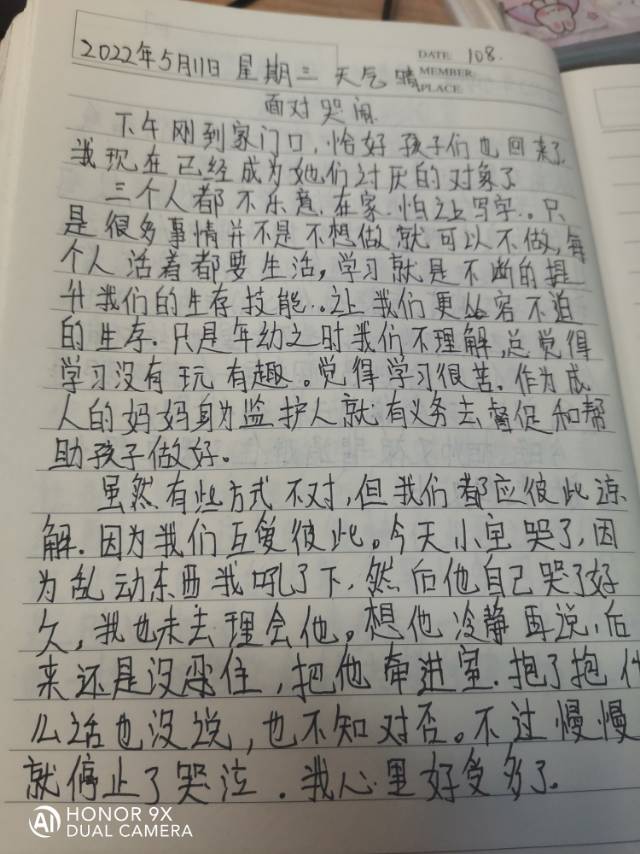 2022年5月11日 星期三 天气晴
DATE 108.
MEMBER:
PLACE:
面对哭闹
下午刚到家门口,恰好孩子们也回来了.
我现在已经成为她们讨厌的对象了
三个人都不乐意.在家.怕之上写字..只
是很多事情并不是不想做就可以不做,每
个人活着都要生活,学习就是不断的提
升我们的生存技能..让我们更从容不迫
的生存.只是年幼之时我们不理解,总觉得
学习没有玩有趣。觉得学习很苦.作为成
人的妈妈身为监护人就有义务去督促和帮
助孩子做好。
虽然有些方式不对,但我们都应彼此谅
解.因为我们互爱彼此。今天小宝哭了,因
为乱动东西我吼了下.然后他自己哭了好
久,我也未去理会他。想他冷静再说,后
来还是没忍住,把他牵进室.抱了抱什
么话也没说,也不知对否。不过慢慢
就停止了哭泣.我心里好受多了.
HONOR 9X
AI DUAL CAMERA